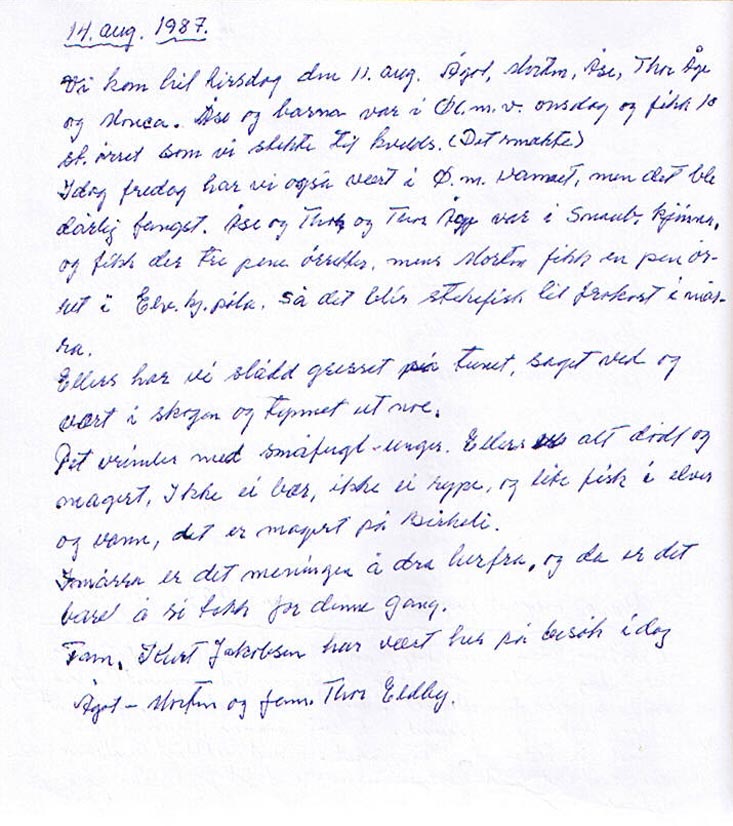 14. aug. 1987.
Vi kom hit tirsdag den 11. aug. Ågot, Morten, Åse, Thor Åge
og Monica. Åse og barna var i Ø.m.v. onsdag og fikk 10
st. ørret som vi stekte til kvelds. (Det smakte)
Idag fredag har vi også vært i Ø.m. vannet, men det ble
dårlig fangst. Åse og Thor og Thor Åge var i Snaub. kjønna,
og fikk der tre pene ørreter, mens Morten fikk en pen ør-
ret i Elv.kj.påla. Så det blir stekefisk til frokost i mår-
ra.
Ellers har vi slådd gresset på tunet, saget ved og
vært i skogen og tynnet ut noe.
Det vrimler med småfugl-unger. Ellers alt dødt og
magert, Ikke ei bær, ikke ei rype, og lite fisk i elver
og vann, det er magert på Birkeli.
Imårra er det meningen å dra herfra, og da er det
bare å si takk for denne gang.
Fam. Kurt Jakobsen har vært her på besøk idag
Ågot - Morten og fam. Thor Eldby.